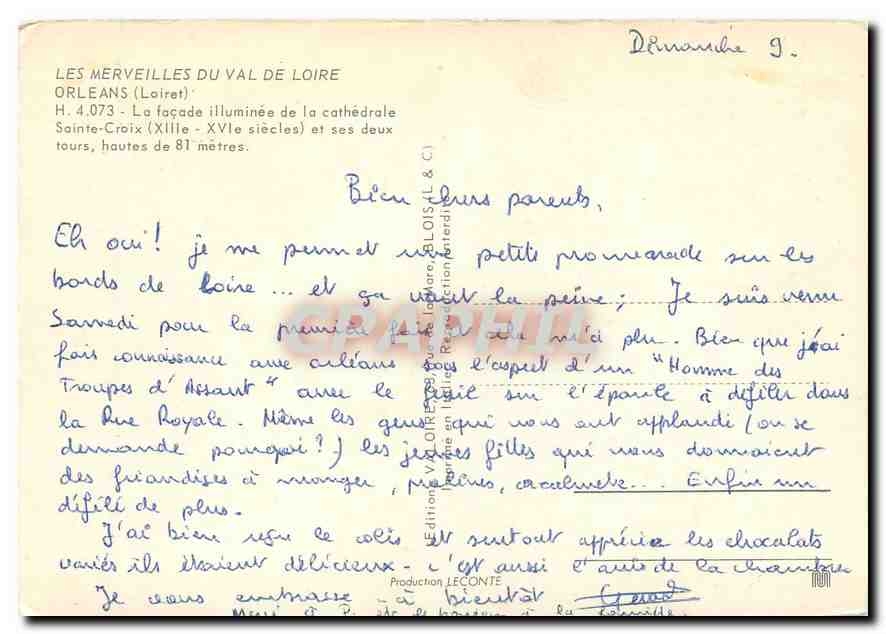 Dimanche 9.
LES MERVEILLES DU VAL DE LOIRE
ORLEANS (Loiret)
H. 4.073 - La façade illuminée de la cathédrale
Sainte-Croix (XIIIe - XVIe siècles) et ses deux
tours, hautes de 81 mètres.
Bien chers parents,
Eh oui! je me permet une petite promenade sur les
bords de Loire ... et ça vaut la peine; Je suis venu
Samedi pour la première fois et cela m'a plu. Bien que j'ai
fais connaissance avec orléans sous l'aspect d'un "Homme des
Troupes d'Assaut" avec le fusil sur l'épaule à défiler dans
la Rue Royale. Même les gens qui nous ont applaudi (on se
demande pourquoi?) les jeunes filles qui nous donnaient
des friandises à manger, pralines, cacahuète... Enfin un
défilé de plus.
J'ai bien reçu le colis et surtout apprécié les chocolats
variés ils étaient délicieux - c'est aussi l'avis de la chambre
Je vous embrasse - à bientôt Gérard
et le bonjour à la famille
Editions VALOIRE, Rue de la Mare, BLOIS (L & C)
Imprimé en Italie - Reproduction interdite
Production LECONTE
CPAPHIL